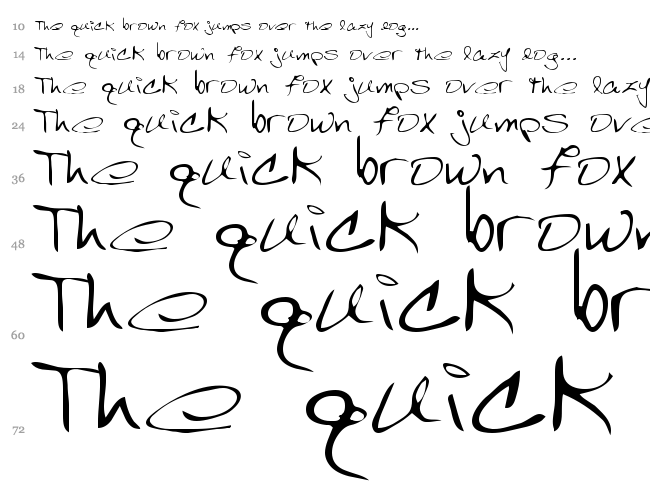 10 The quick brown fox jumps over the lazy dog...
14 The quick brown fox jumps over the lazy dog...
18 The quick brown fox jumps over the lazy
24 The quick brown fox jumps ove
36 The quick brown fox
48 The quick brown
60 The quick br
72 The quick